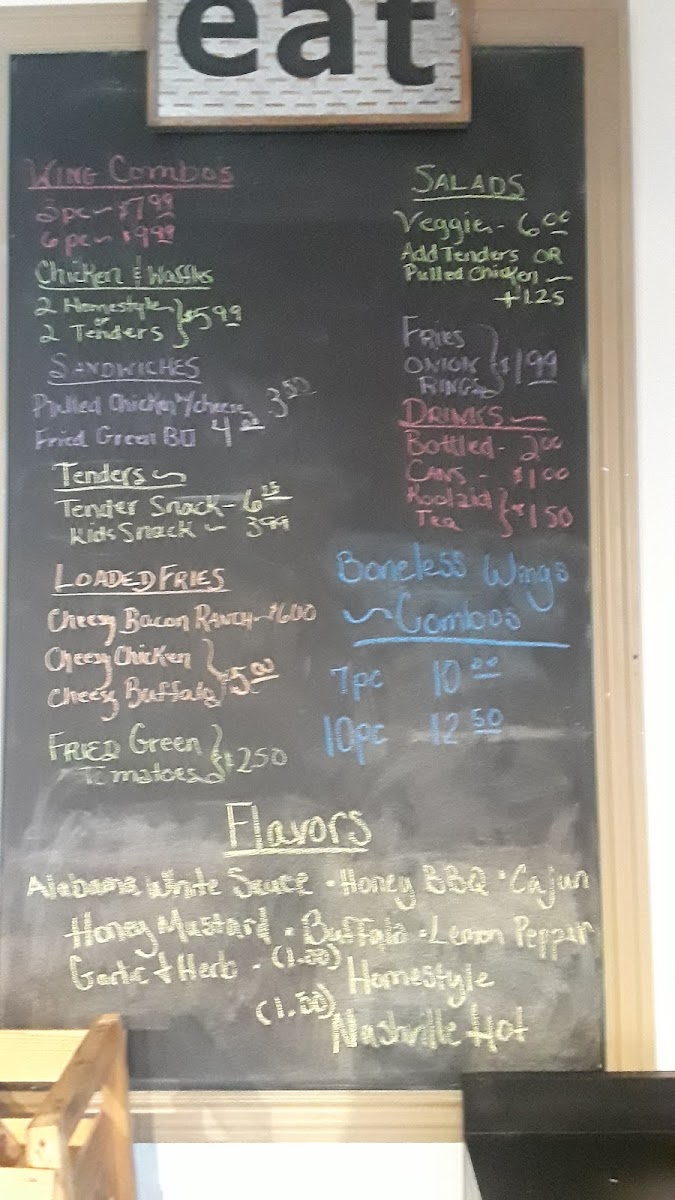 eat
WING COMBO'S
3pc~ $7.99
6pc~ $9.99
Chicken & Waffles
2 Homestyle
or
2 Tenders } $5.99
SANDWICHES
Pulled Chicken w/cheese 3.50
Fried Green BLT 4.00
Tenders~
Tender Snack- 6.25
Kids Snack ~ 3.99
LOADED FRIES
Cheesy Bacon RANCH~$6.00
Cheesy Chicken
Cheesy Buffalo } $5.00
FRIED Green
Tomatoes } $2.50
SALADS
Veggie- 6.00
Add Tenders OR
Pulled Chicken ~
+1.25
FRIES
ONION
RINGS } $1.99
DRINKS~
Bottled- 2.00
CANS - $1.00
Koolaid
Tea } $1.50
Boneless Wings
~Combos
7pc 10.00
10pc 12.50
Flavors
Alabama White Sauce • Honey BBQ • Cajun
Honey Mustard • Buffalo • Lemon Pepper
Garlic & Herb - (1.00) Homestyle
(1.50) Nashville Hot